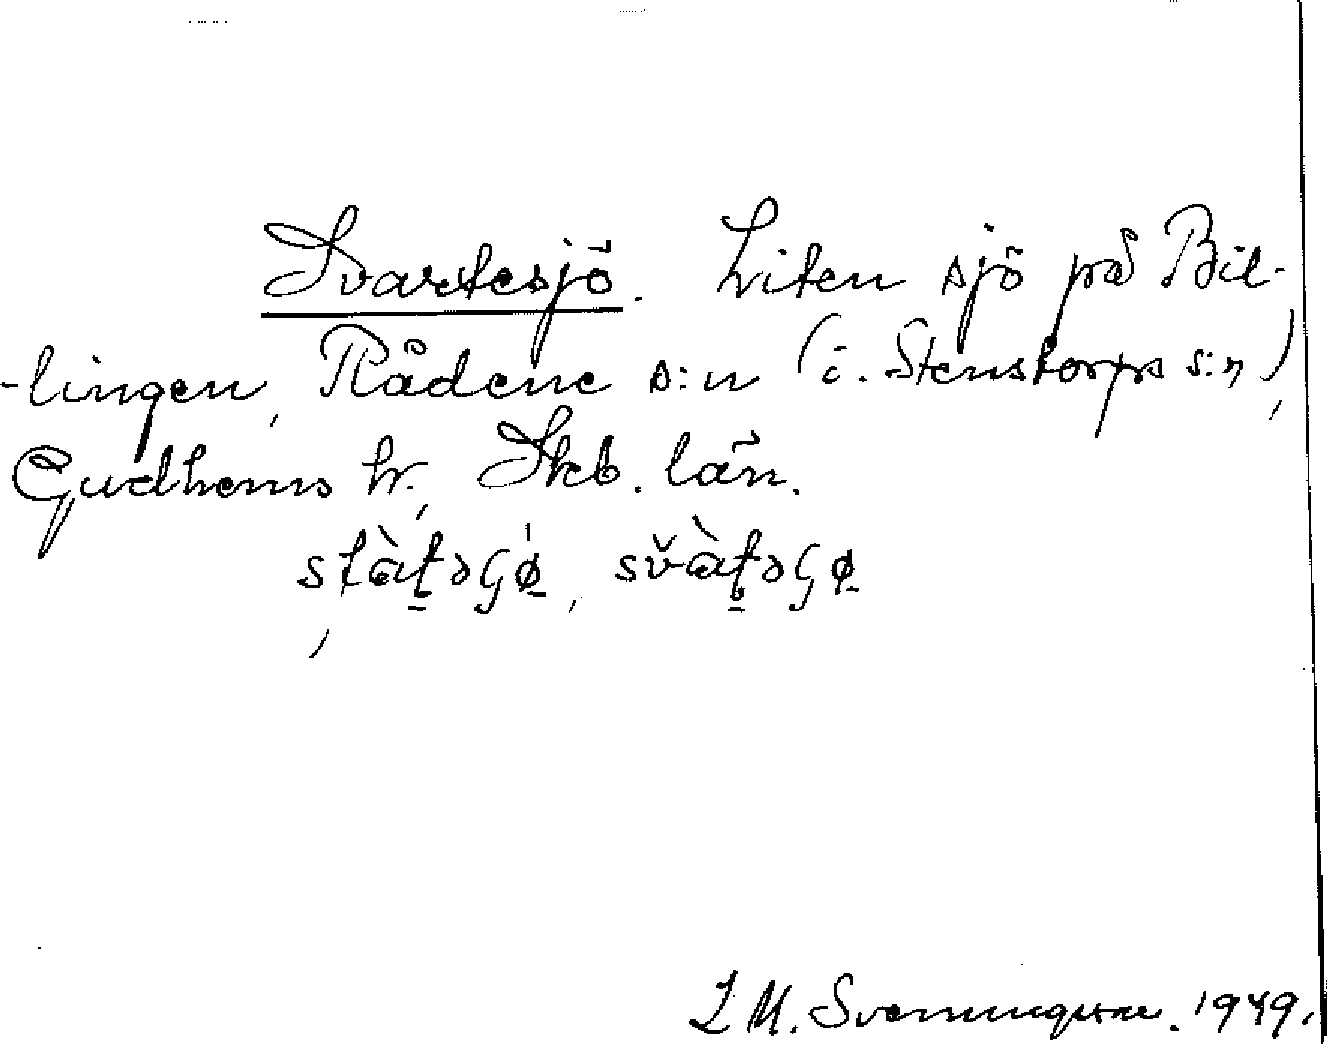 Svartesjö. Liten sjö på Bil-
-lingen, Rådene s:n (i. Stenstorps s:n),
Gudhems hr., Skb. län.
L M. Svenningsson. 1949.